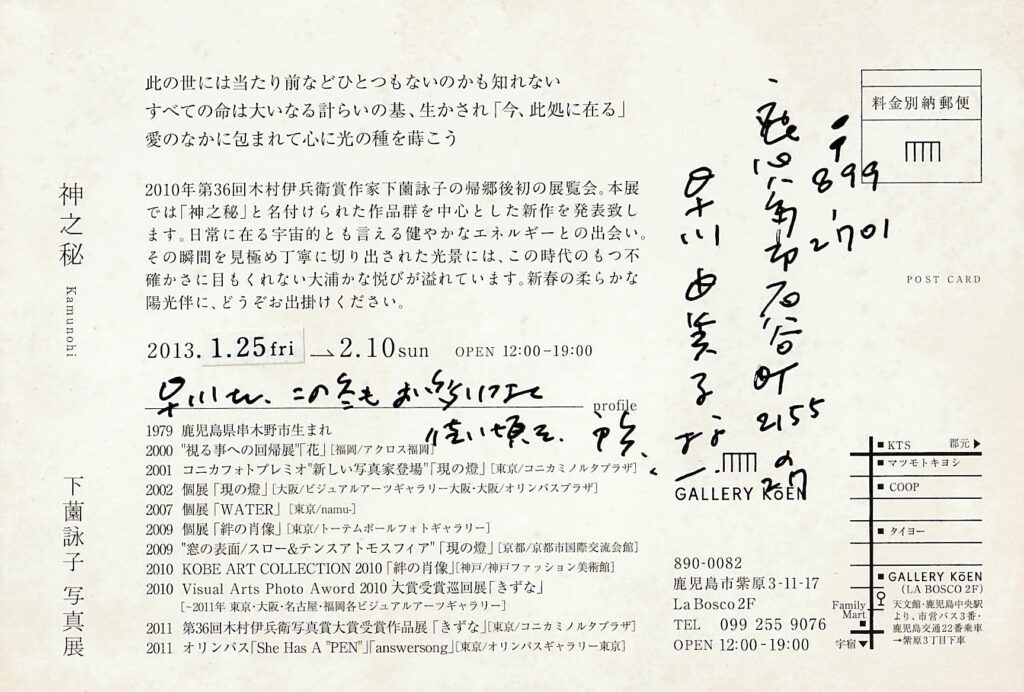 此の世には当たり前などひとつもないのかも知れない
すべての命は大いなる計らいの基、生かされ「今、此処に在る」
愛のなかに包まれて心に光の種を蒔こう
神之秘 Kamunohi
2010年第36回木村伊兵衛賞作家下薗詠子の帰郷後初の展覧会。本展
では「神之秘」と名付けられた作品群を中心とした新作を発表致し
ます。日常に在る宇宙的とも言える健やかなエネルギーとの出会い。
その瞬間を見極め丁寧に切り出された光景には、この時代のもつ不
確かさに目もくれない大浦かな悦びが溢れています。新春の柔らかな
陽光伴に、どうぞお出掛けください。
2013. 1.25fri → 2.10sun OPEN 12:00-19:00
早川さん この冬も
profile
1979 鹿児島県串木野市生まれ
2000 "視る事への回帰展"「花」[福岡/アクロス福岡]
2001 コニカフォトプレミオ"新しい写真家登場"「現の燈」[東京/コニカミノルタプラザ]
2002 個展「現の燈」[大阪/ビジュアルアーツギャラリー大阪・大阪/オリンパスプラザ]
2007 個展「WATER」[東京/namu-]
2009 個展「絆の肖像」[東京/トーテムポールフォトギャラリー]
2009 "窓の表面/スロー&テンスアトモスフィア"「現の燈」[京都/京都市国際交流会館]
2010 KOBE ART COLLECTION 2010「絆の肖像」[神戸/神戸ファッション美術館]
2010 Visual Arts Photo Award 2010 大賞受賞巡回展「きずな」
[~2011年 東京・大阪・名古屋・福岡各ビジュアルアーツギャラリー]
2011 第36回木村伊兵衛写真賞大賞受賞作品展「きずな」[東京/コニカミノルタプラザ]
2011 オリンパス「She Has A "PEN"」「answersong」[東京/オリンパスギャラリー東京]
下薗詠子 写真展
料金別納郵便
POST CARD
〒899-2701
鹿児島市石谷町2155の27
早川由美子さま
GALLERY KōEN
890-0082
鹿児島市紫原3-11-17
La Bosco 2F
TEL 099 255 9076
OPEN 12:00-19:00
KTS 郡元▶
マツモトキヨシ
COOP
タイヨー
GALLERY KōEN
(LA BOSCO 2F)
天文館・鹿児島中央駅
より、市営バス3番・
鹿児島交通22番乗車
→紫原3丁目下車
Family
Mart
宇宿▼